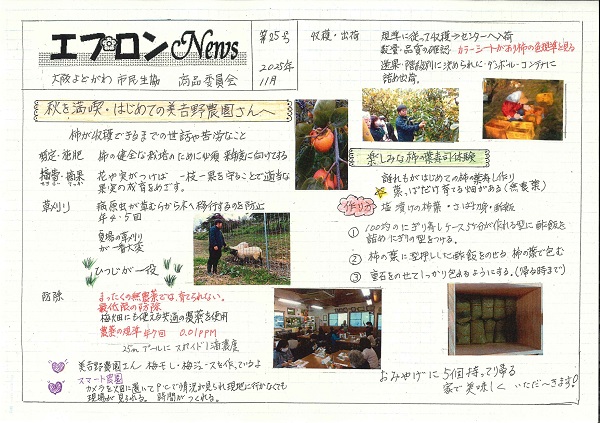 エプロンcNews
第25号
2025年
11月
大阪よどがわ市民生協 商品委員会
秋を満喫・はじめての美吉野農園さんへ
柿が収穫できるまでの世話や苦労なこと
剪定・施肥 柿の健全な栽培のために必須 来年度に向けてする
摘蕾・摘果 花や実がつけば 一枝一果を守ることで適度な
果実の成育をめざす。
草刈り 病原虫が草むらから木へ移行するのを防止
年4・5回
夏場の草刈り
が一番大変
ひつじが一役
防除 まったくの無農薬では育てられない。
最低限の防除
梅畑にも使える共通の農薬を使用
農薬の標準 年7回 0.01PPM
25mプールにスポイト1滴濃度
美吉野農園さん 梅干し・梅ジュースを作っているよ
スマート農園
カメラを入口に置いてPCで情況が見られ現地に行かなくても
現場が見られる。時間がつくれる。
収穫・出荷 規準に従って収穫→センターへ入荷
数量・品質の確認 カラーシートがあり柿の色規準を見る
選果・階級別に決められた ダンボール・コンテナに
詰め出荷。
楽しみな柿の葉寿司体験
誰もがはじめての柿の葉寿し作り
葉っぱだけ育てる畑がある(無農薬)
作り方 塩漬けの柿葉・さば切身・酢飯
① 100均のにぎり寿しケース5ケ分が作れる型に酢飯を
詰め にぎりの型をつける。
② 柿の葉に型押しした酢飯をのせる 柿の葉で包む
③ 重石をのせてしっかり包めるようにする。(帰る時まで)
おみやげに5個持って帰る
家で美味しく いただ〜きます♪